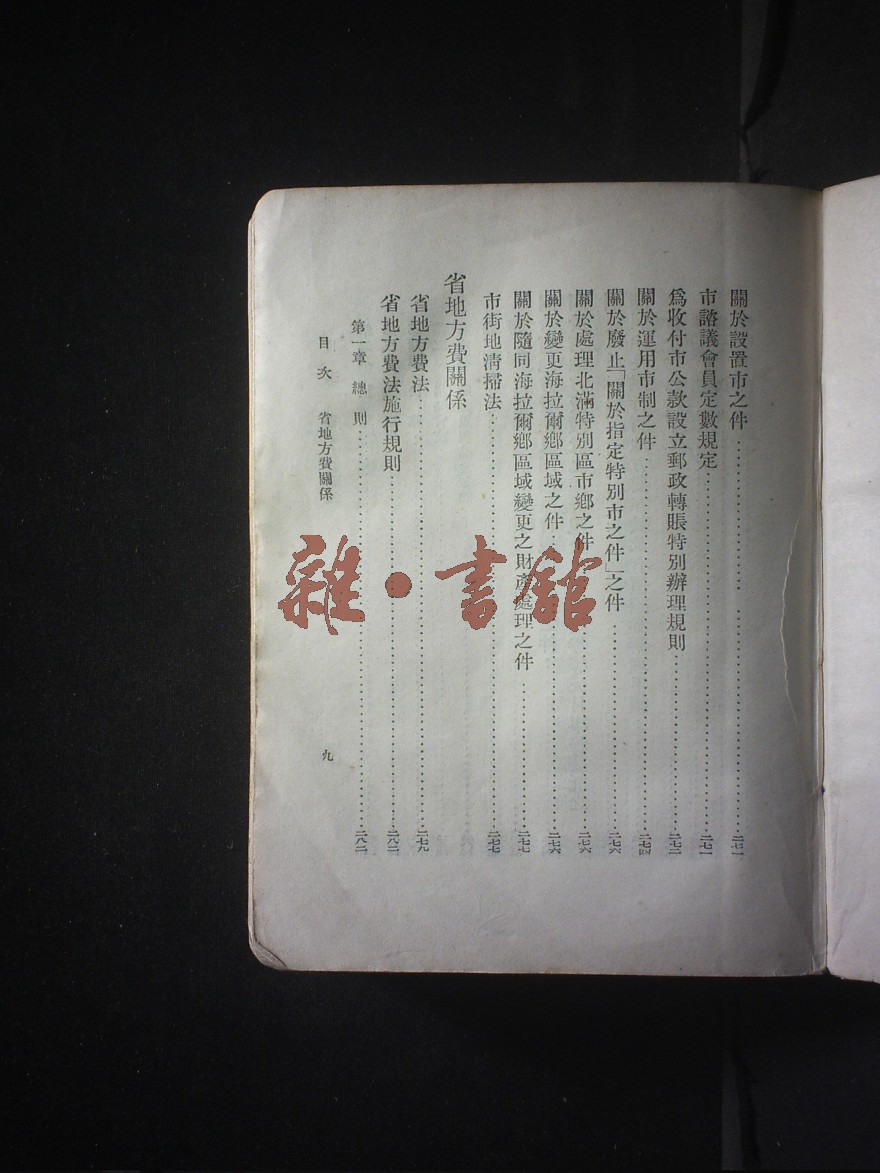 關於設置市之件……二七一
市諮議會員定數規定……二七一
爲收付市公款設立郵政轉賬特別辦理規則……二七二
關於運用市制之件……二七四
關於廢止「關於指定特別市之件」之件……二七六
關於處理北滿特別區市鄉之件……二七六
關於變更海拉爾鄉區域之件……二七六
關於隨同海拉爾鄉區域變更之財產處理之件……二七七
市街地淸掃法……二七七
省地方費關係
省地方費法……二七九
省地方費法施行規則……二八二
第一章 總則……二八二
目次 省地方費關係 九
雜·書館